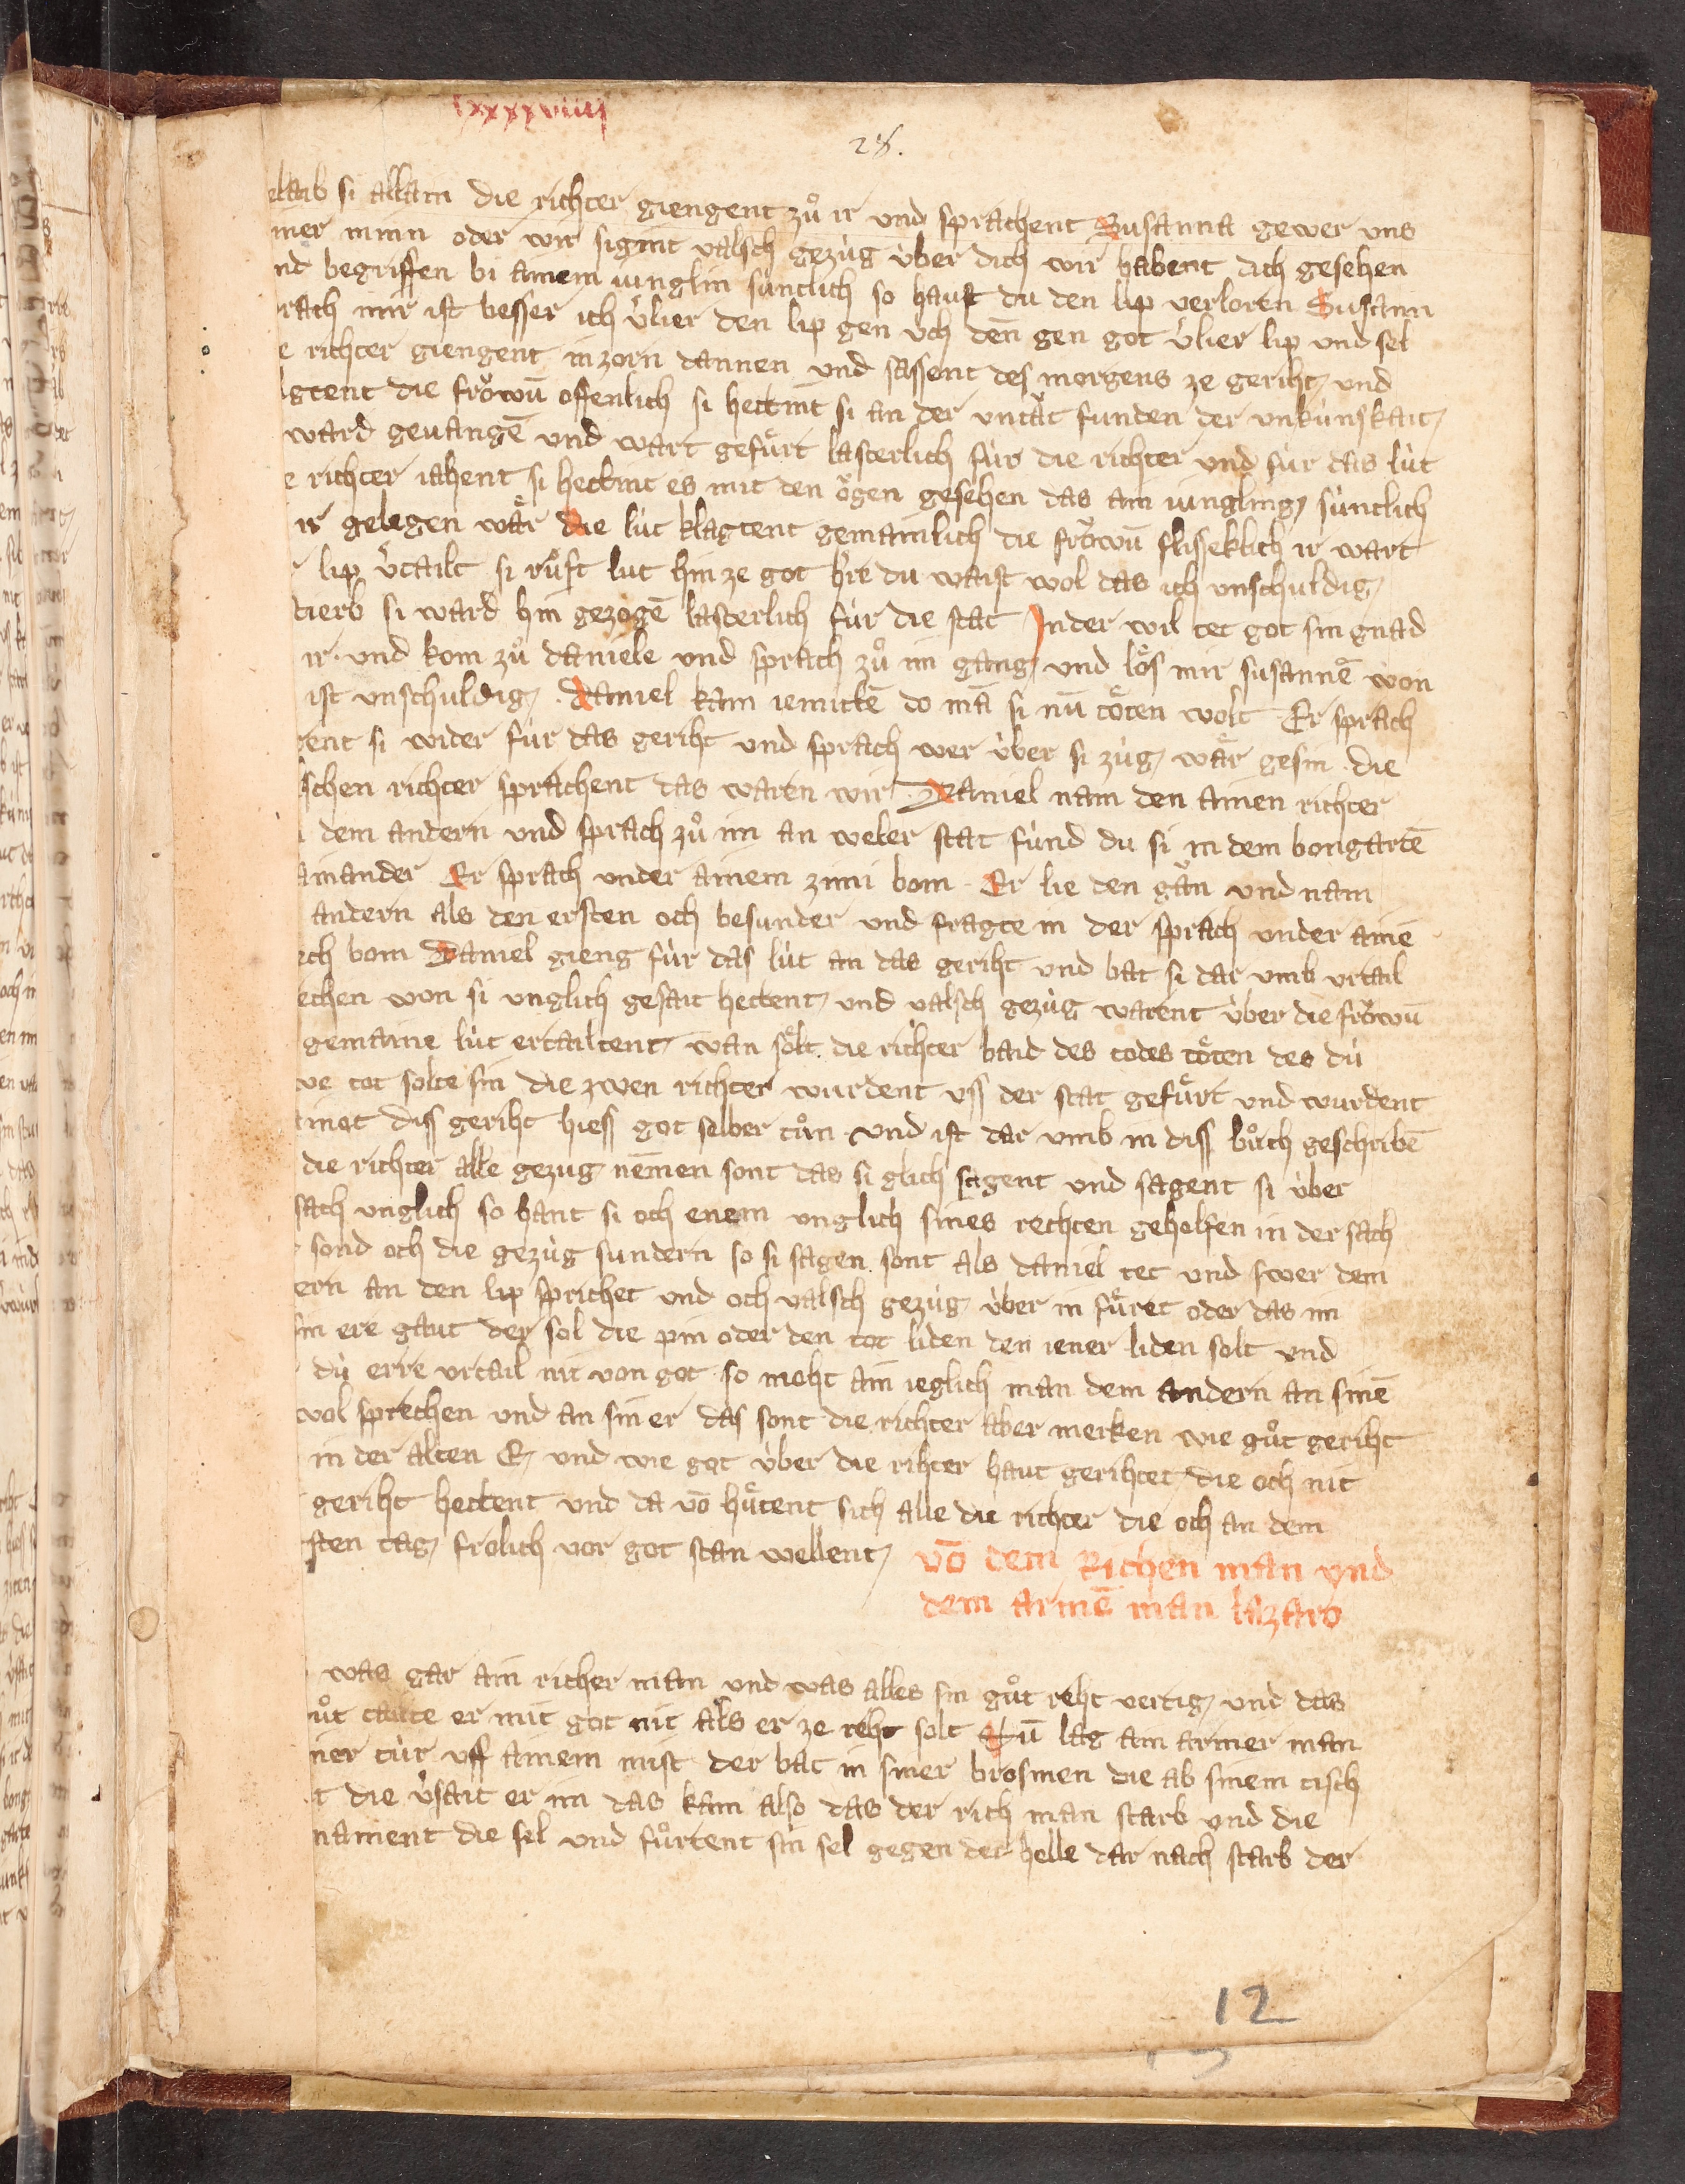 lxxxxviiij
28.
elaib si allain die richter giengent zuͦ ir und sprachent Susanna gewer uns
iner minn oder wir sigint valsch gezúg úber dich wir habent dich gesehen
nd begriffen bi ainem iunglin súntlich so haust du den lip verloren Susann
rach mir ist besser ich v̉lier den lip gen úch deñ gen got v̉lier lip und sel
e richter giengent in zorn dannen und sassent des morgens ze geriht und
gtent die froͤwū offenlich si hettint si an der untaͤt funden der unkúnskait
ward gevangē und wart gefuͤrt lasterlich fúr die richter und fúr das lút
e richter iahent si hettint es mit den oͤgen gesehen das ain iungling súntlich
ir gelegen waͤr die lút klagtent gemainlich die froͤwū flisseklich ir wart
lip v̉tailt si ruͤft lut hin ze got h̉re du waist wol das ich unschuldig
tierb si ward hin gezogē lasterlich fúr die stat In der wil tet got sin gnad
ir und kom zuͦ daniele und sprach zuͦ im gang und loͤs mir susannē won
ist unschuldig Daniel kam iemittē do mā si nū toͤten wolt Er sprach
rent si wider fúr das geriht und sprach wer úber si zúg waͤr gesin die
schen richter sprachent das waren wir Daniel nam den ainen richter
dem andern und sprach zuͦ im an weler stat fúnd du si in dem bongartē
ainander Er sprach under ainem zinni bom Er lie den gān und nam
andern als den ersten och besunder und fragte in der sprach under ainē
ech bom Daniel gieng fúr das lút an das geriht und bat si dar umb urtail
echen won si unglich gesait hettent und valsch gezúg warent úber die froͤwū
gemaine lút ertailtent wan soͤlt die richter baid des todes toͤten des dú
we tot solte sin die zwen richter wurdent uss der stat gefuͤrt und wurdent
inot diss geriht hiess got selber tuͦn und ist dar umb in diss buͦch geschribē
die richter alle gezug nem̄en sont das si glich sagent und sagent si úber
sach unglich so hant si och enem unglich sines rechten geholfen in der sach
sond och die gezúg sundern so si sagen sont als daniel tet und swer dem
ern an den lip sprichet und och valsch gezúg úber in fuͤret oder das im
sin ere gaut der sol die pin oder den tot liden den iener liden solt und
dú erre urtail nit von got so moht ain ieglich man dem andern an sinē
wol sprechen und an sin er das sont die richter aber merken wie guͦt geriht
in der alten E und wie got úber die rihter haut gerihtet die och nit
geriht hettent und da vō huͤtent sich alle die richter die och an dem
sten tag frolich vor got stan wellent vō dem Richen man und
dem armē man lazaro
was gar ain richer man und was alles sin guͦt reht vertig und das
uͦt tailte er mit got nit als er ze reht solt Nū lag ain armer man
iner túr uff ainem mist der bat in siner brosmen die ab sinem tisch
t die v̉sait er im das kam also das der rich man starb und die
nament die sel und fuͦrtent sin sel gegen der helle dar nach starb der
12